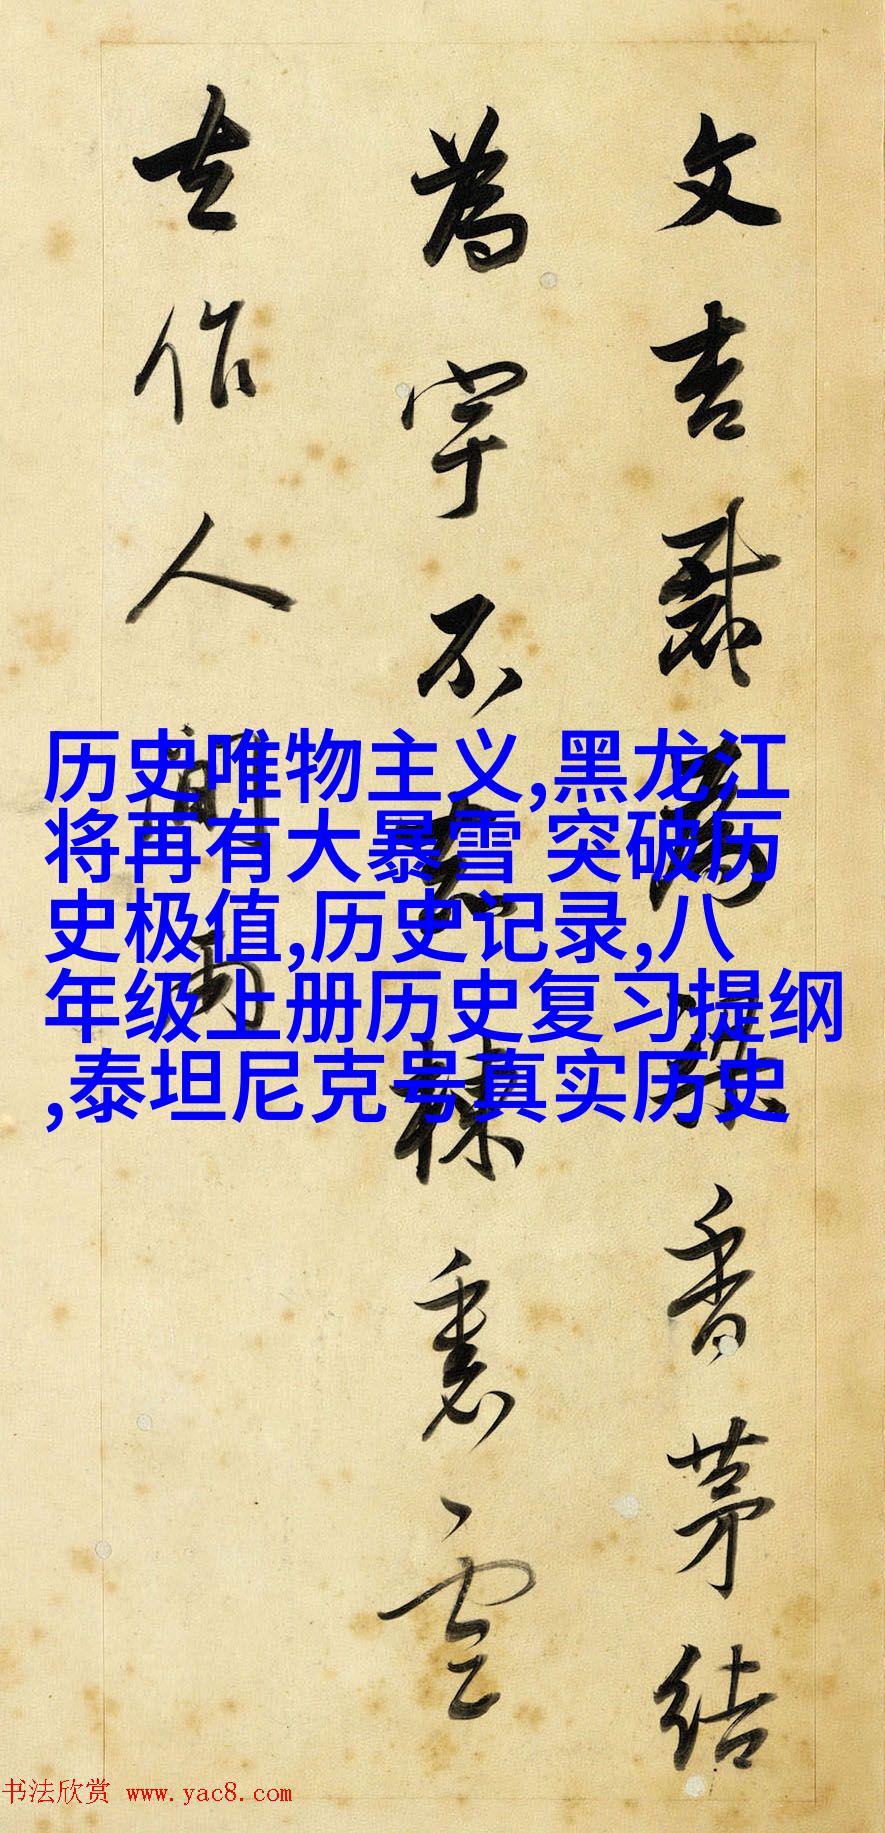 文杏裁為梁香茅結
為宇不知棟裏雲
去作人間雨
历史唯物主义,黑龙江
将再有大暴雪 突破历
史极值,历史记录,八
年级上册历史复习提纲
,泰坦尼克号真实历史
书法欣赏 www.yac8.com